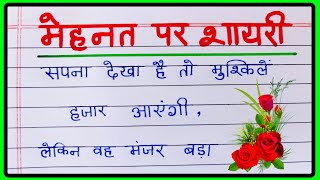 मेहनत पर शायरी
सपना देखा है तो मुश्किलें
हजार आएंगी,
लेकिन वह मंजर बड़ा